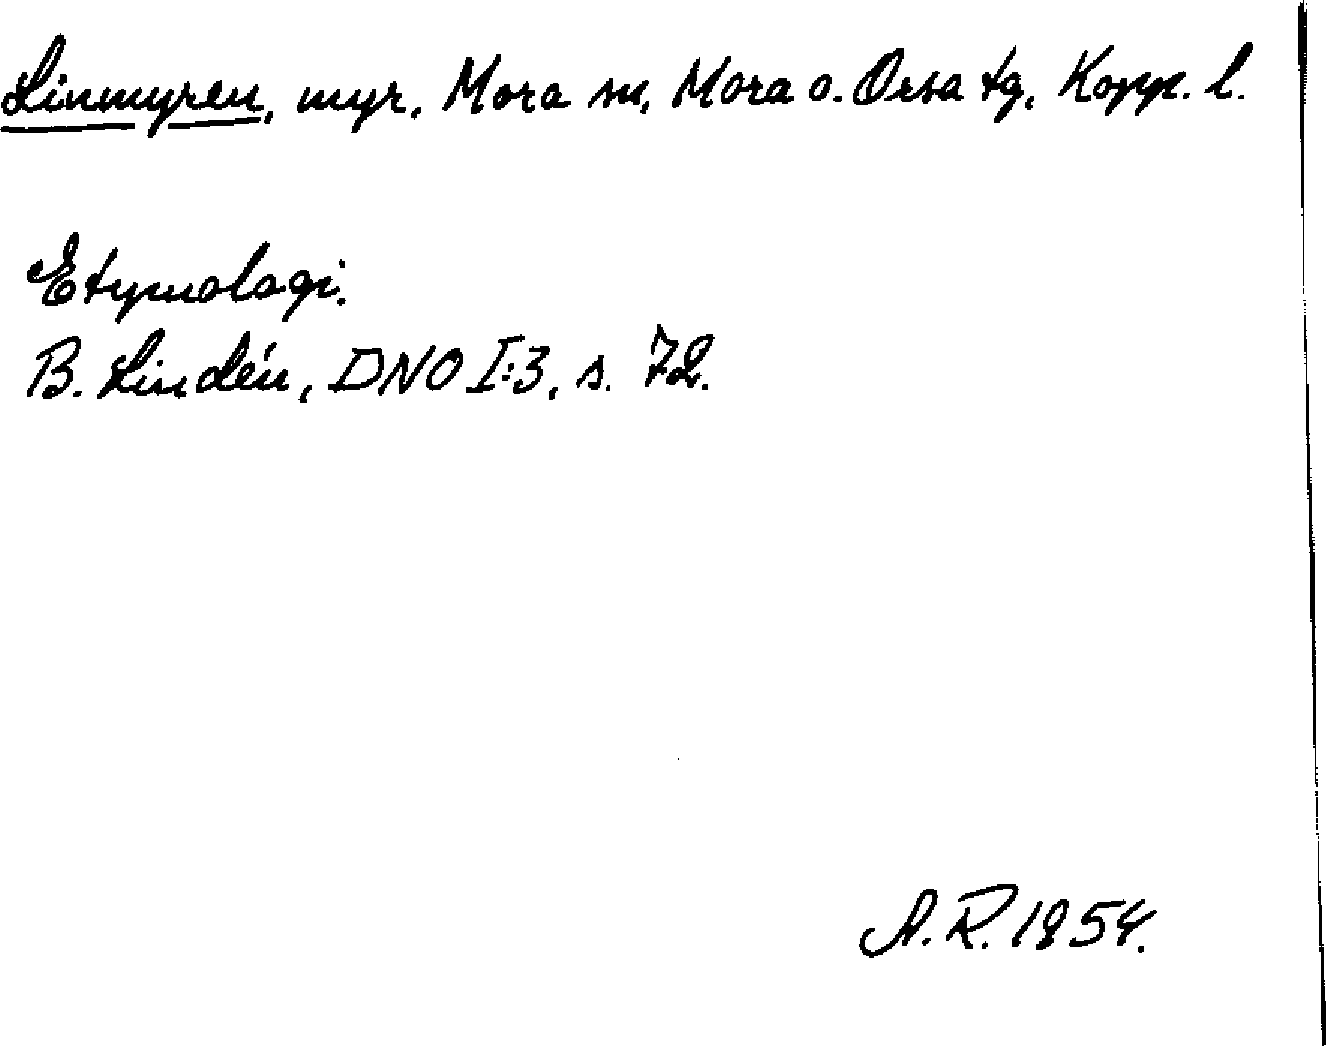 Linmyren, myr, Mora sn, Mora o. Orsa tg, Kopp. l.
Etymologi.
B. Lindén, DNO I:3, s. 72.
A.R. 1954.